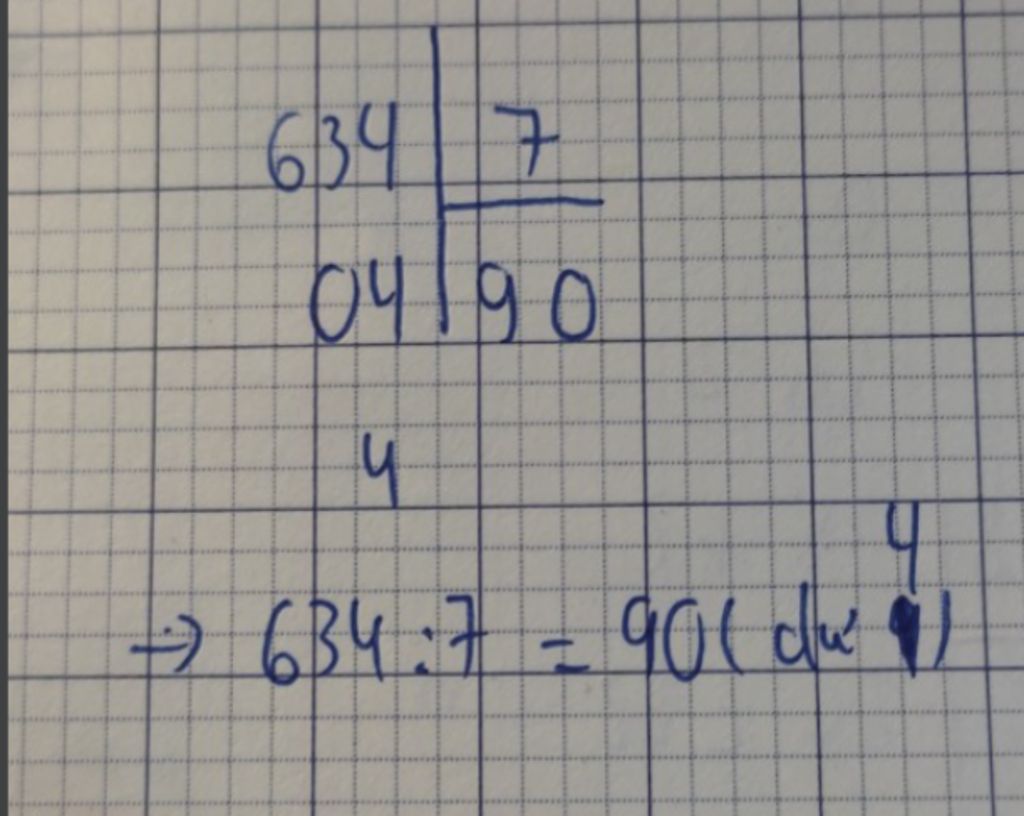 634 7
04 90
4
4
→ 634 : 7 = 90 ( dư )